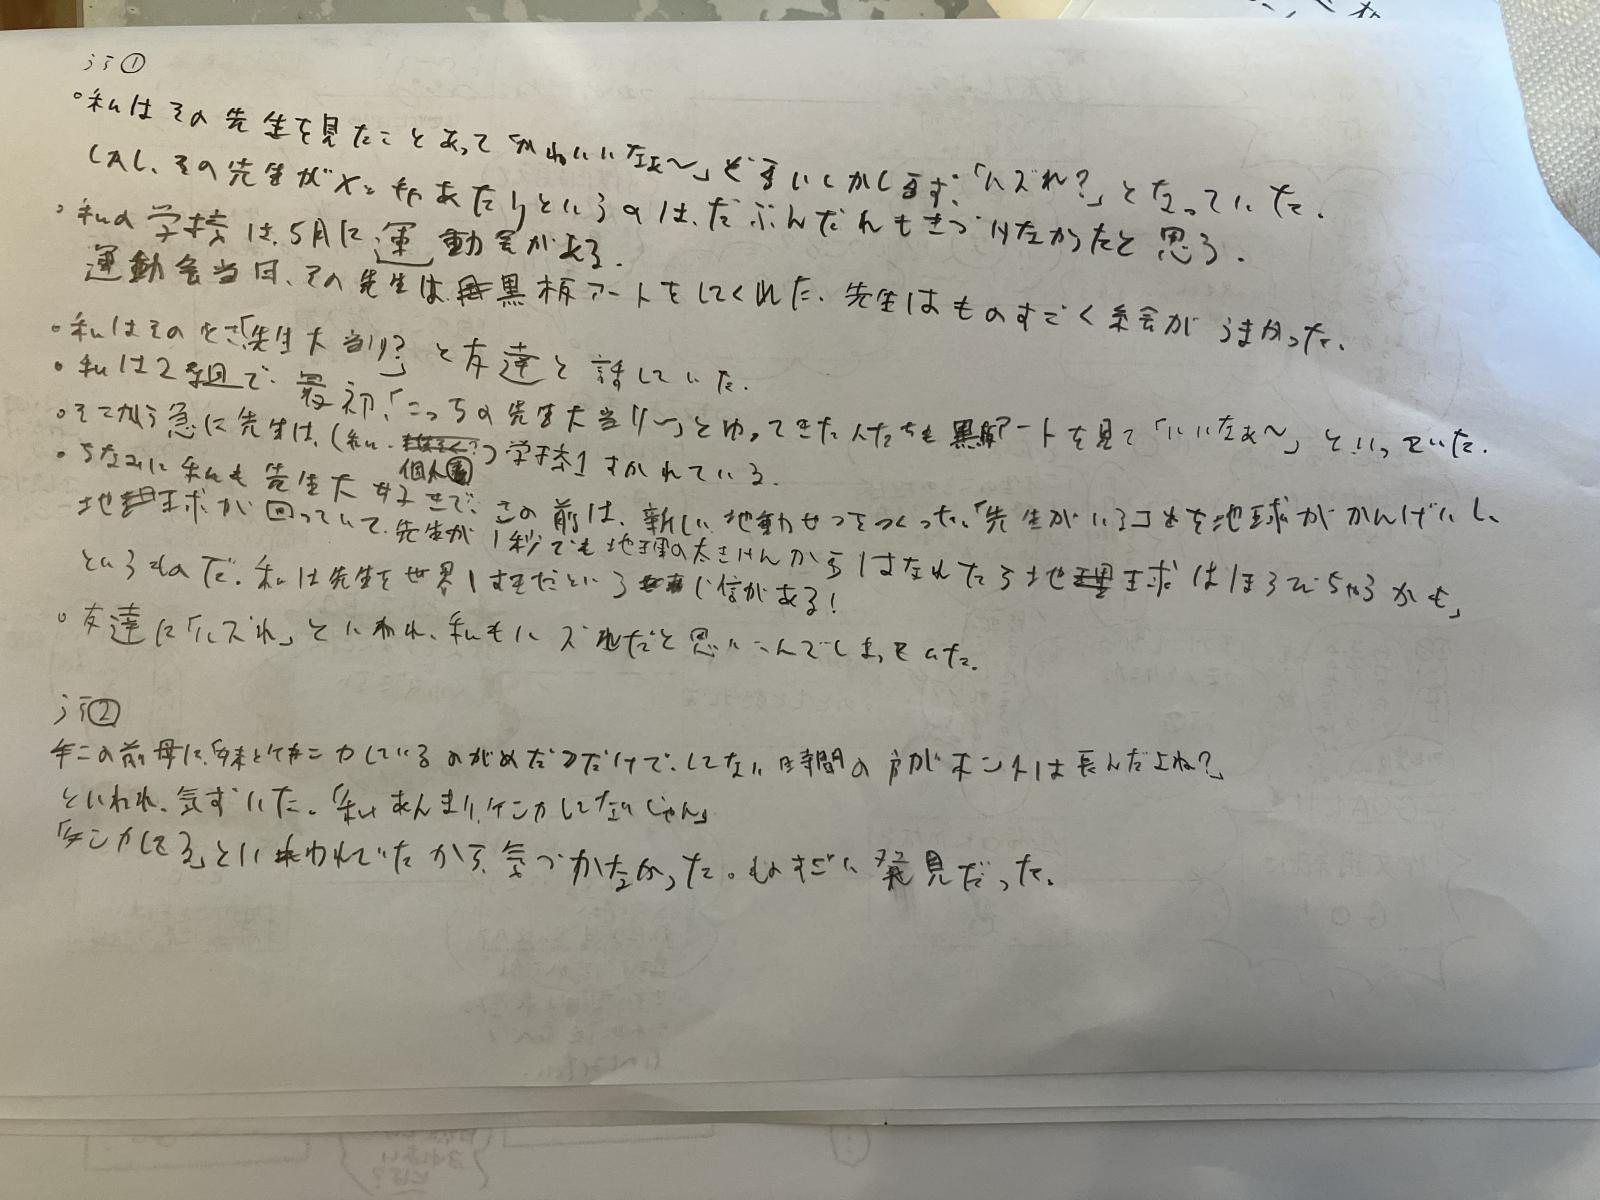 うラ①
・私はその先生を見たことあって「かわいいなぁ〜」と言いしかし「ハズれ?」となっていた。
しかし、その先生がメチャあたりというのは、たぶんだれもきづけなかったと思う。
・私の学校は、5月に運動会がある。
運動会当日、その先生は黒板アートをしてくれた。先生はものすごく絵がうまかった。
・私はそのとき「先生大当り?」と友達と話していた。
・私は2組で、最初、「こっちの先生大当り〜」とゆってきた人たちも黒板アートを見て「いいなぁ〜」といっていた。
・そこから急に先生は、(私 個人)学校1すかれている。
・ちなみに私も先生大好きで、この前は、新しい地動せつをつくった。「先生がいることを地球がかんげいし、
地球が回っていて、先生が1秒でも地球からはなれたら地球はほろびちゃうかも」
というものだ。私は先生を世界1すきだという自信がある!
・友達に「ハズれ」といわれ、私もハズれだと思いこんでしまっていた。
うラ②
この前母に、「妹とケンカしているのがめだつだけで、してない時間の方がホントは長んだよね?」
といわれ、気ずいた。「私あんまりケンカしてないじゃん」
「ケンカしてる」といわれていたから、気づかなかった。ものすごい発見だった。